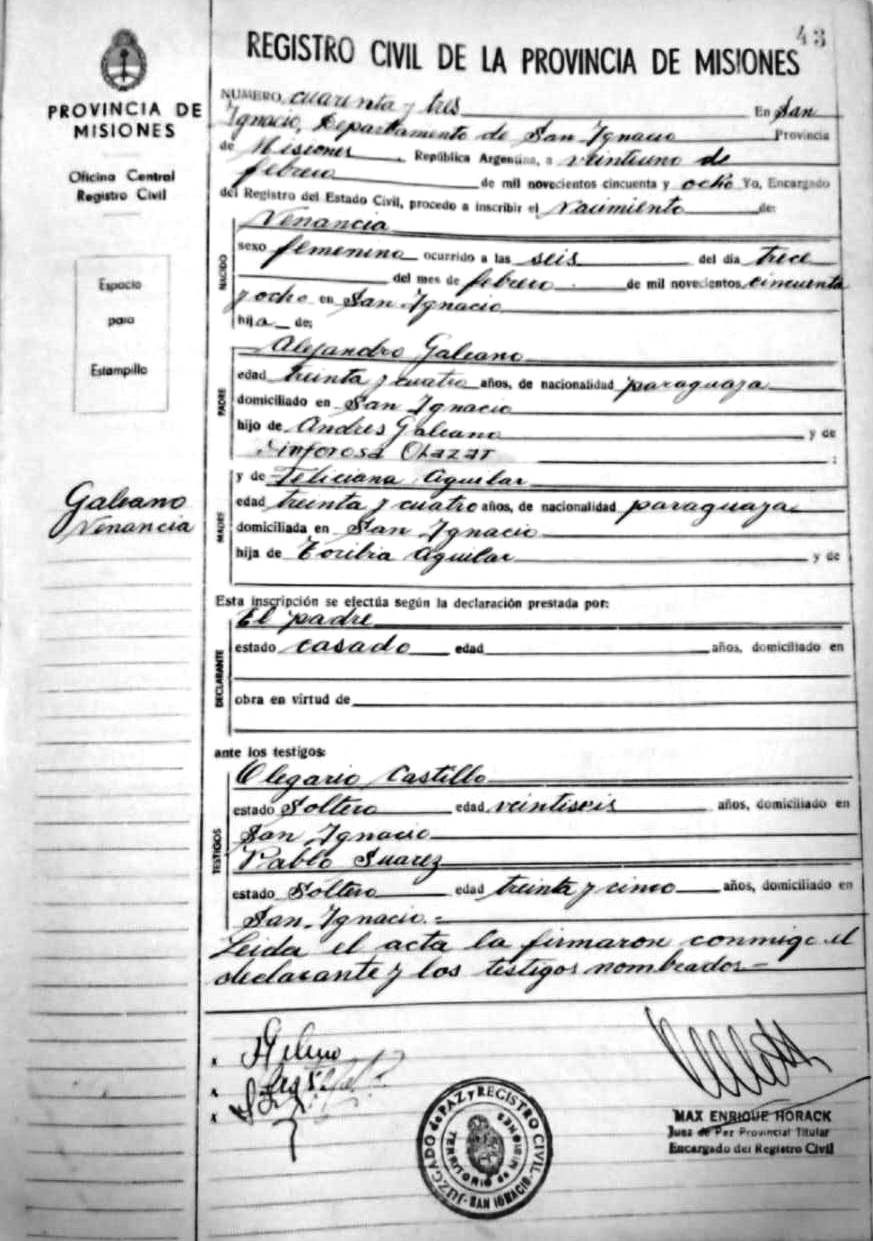 43
REGISTRO CIVIL DE LA PROVINCIA DE MISIONES
PROVINCIA DE
MISIONES
Oficina Central
Registro Civil
Espacio
para
Estampilla
Galeano
Venancia
NUMERO cuarenta y tres En San
Ignacio, Departamento de San Ignacio Provincia
de Misiones República Argentina, a veintiuno de
febrero de mil novecientos cincuenta y ocho Yo, Encargado
del Registro del Estado Civil, procedo a inscribir el Nacimiento de:
NACIDO
Venancia
sexo femenino ocurrido a las seis del día trece
del mes de febrero de mil novecientos cincuenta
y ocho en San Ignacio
hija de:
PADRE
Alejandro Galeano
edad treinta y cuatro años, de nacionalidad paraguaya
domiciliado en San Ignacio
hijo de Andres Galeano y de
Sinforosa Chazar ;
MADRE
y de Feliciana Aguilar
edad treinta y cuatro años, de nacionalidad paraguaya
domiciliada en San Ignacio
hija de Toribia Aguilar y de
Esta inscripción se efectúa según la declaración prestada por:
DECLARANTE
El padre
estado casado edad años, domiciliado en
obra en virtud de
ante los testigos:
TESTIGOS
Olegario Castillo
estado Soltero edad veintiseis años, domiciliado en
San Ignacio
Pablo Suarez
estado Soltero edad treinta y cinco años, domiciliado en
San Ignacio.=
Leida el acta la firmaron conmigo el
declarante y los testigos nombrados-
x
x
x
JUZGADO de PAZ y REGISTRO CIVIL
TERRITORIO de MISIONES
SAN IGNACIO
MAX ENRIQUE HORACK
Juez de Paz Provincial Titular
Encargado del Registro Civil